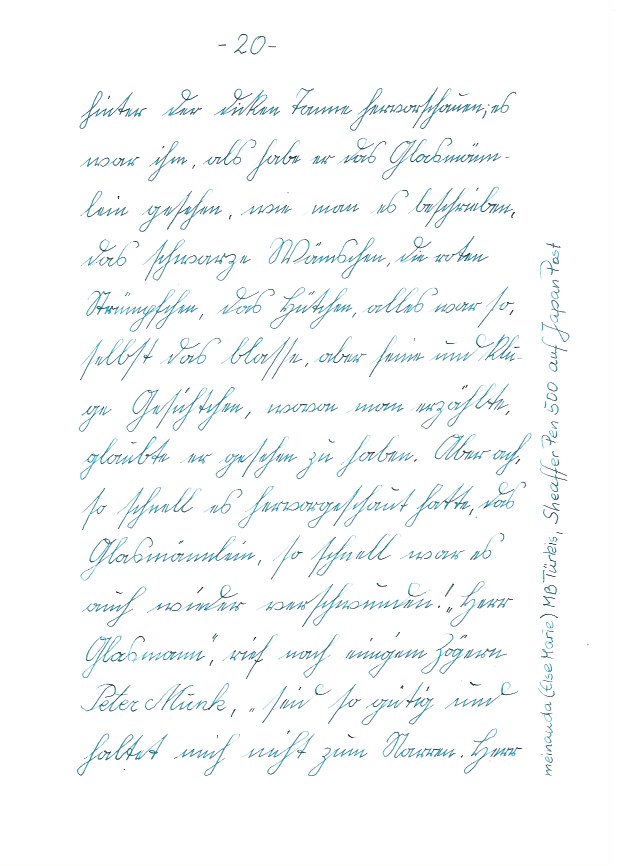 - 20 -
hinter der dicken Tanne hervorschauen; es
war ihm, als habe er das Glasmänn-
lein gesehen, wie man es beschrieben,
das schwarze Wämschen, die roten
Strümpfchen, das Hütchen, alles war so,
selbst das blasse, aber feine und klu-
ge Gesichtchen, wovon man erzählte,
glaubte er gesehen zu haben. Aber ach,
so schnell es hervorgeschaut hatte, das
Glasmännlein, so schnell war es
auch wieder verschwunden! „Herr
Glasmann", rief nach einigem Zögern
Peter Munk, „seid so gütig und
haltet mich nicht zum Narren. Herr
meinauda (Else Marie) MB Türkis, Sheaffer Pen 500 auf Japan Post